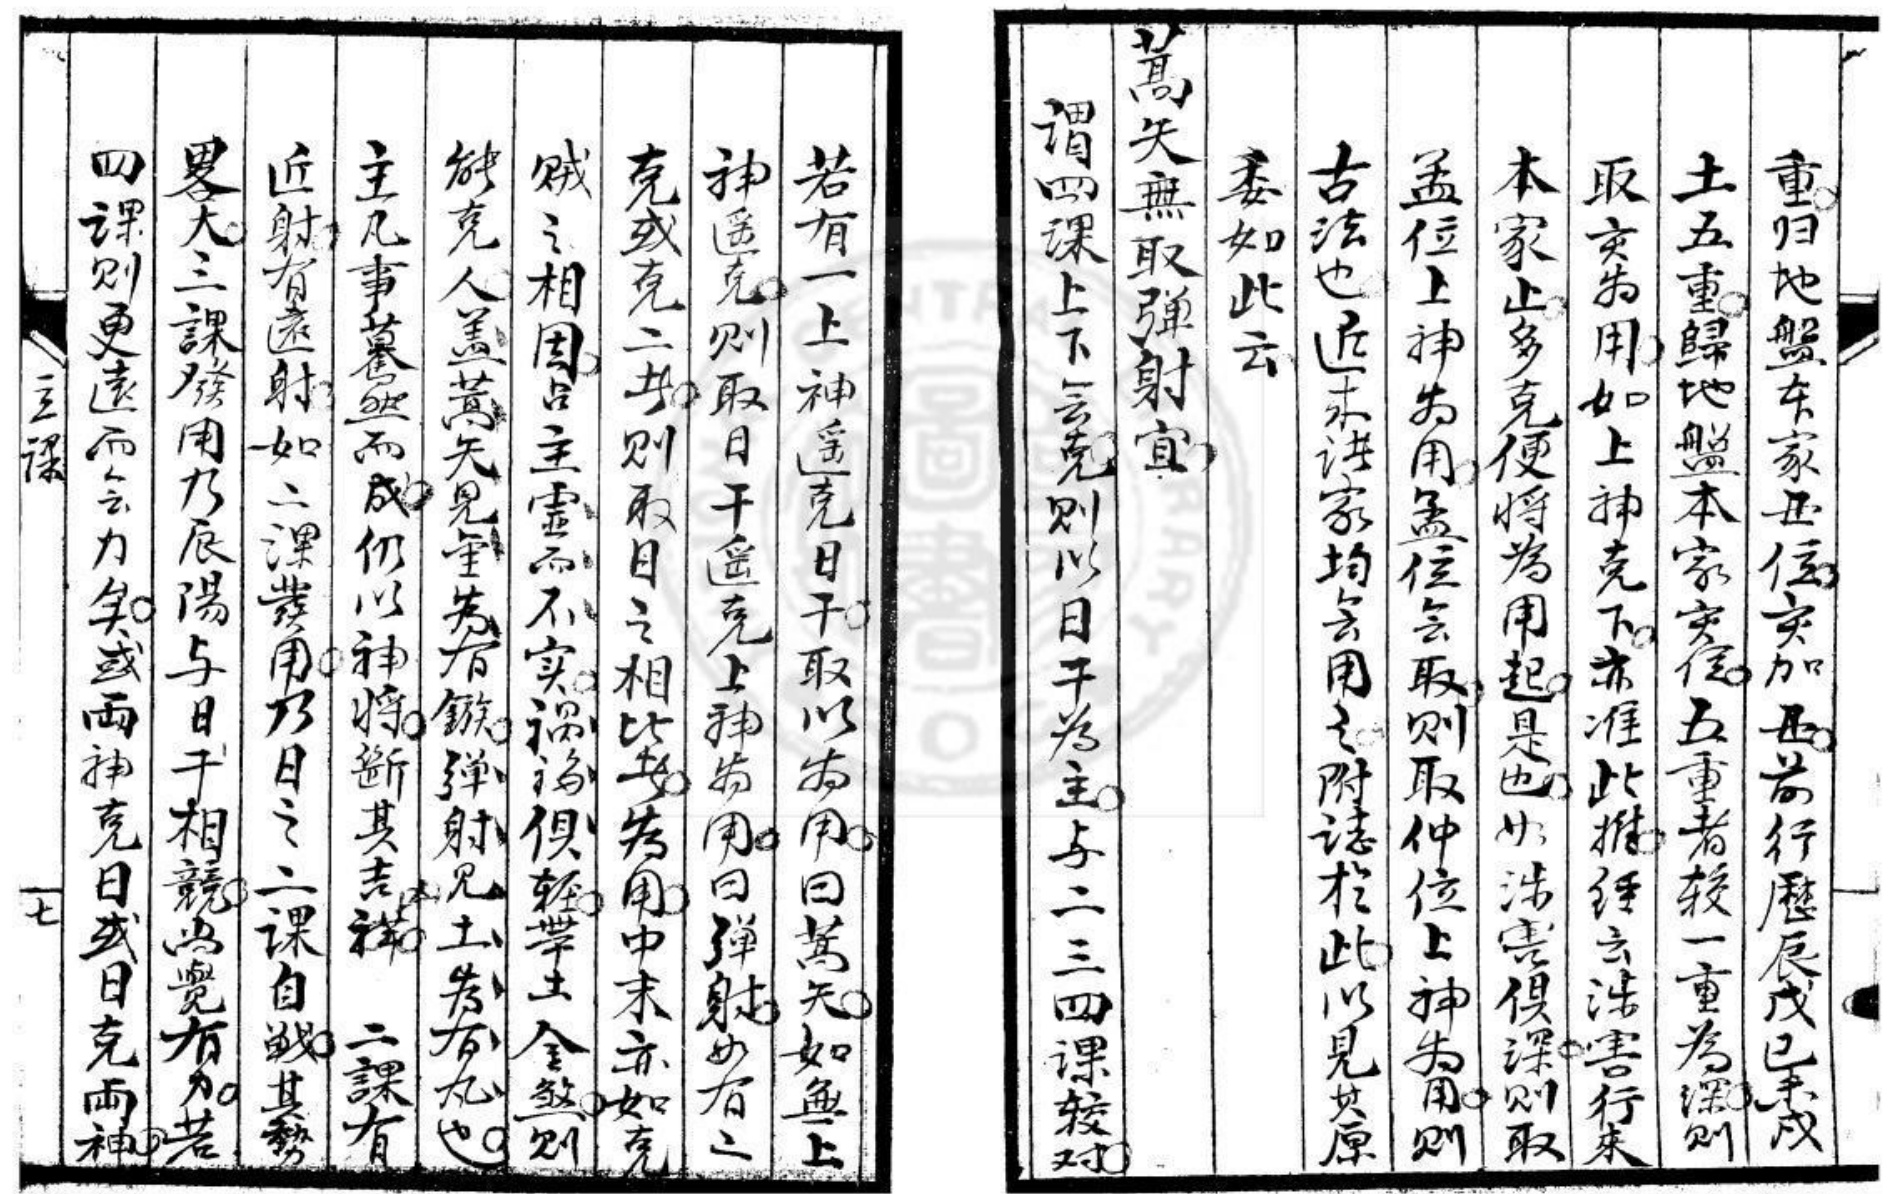 重归地盤本家丑位亥加丑前行歷辰戊巳未戌
土五重歸地盤本家亥位五重者较一重為深则
取亥为用如上神克下亦准此推經云涉害行来
本家止多克便将為用起是也如涉害俱深则取
孟位上神为用孟位无取则取仲位上神为用则
古法也近来诸家均无用之附誌於此以見其原
委如此云
蒿矢無取弹射宜
谓四课上下无克则以日干為主与二三四课较对
若有一上神遥克日干取以为用曰蒿矢如無上
神遥克则取日干遥克上神为用曰弹射如有二
克或克二者则取日之相比者為用中末亦如克
贼之相因占主虚而不实禍福俱轻帶土金煞则
能克人盖蒿矢見金為有鏃弹射見土為有丸也
主凡事驀然而成仍以神将断其吉祥 二課有
近射有遠射如二课發用乃日之二课自戰其勢
畧大三課發用乃辰陽与日干相競尚覺有力若
四课则更遠而无力矣或兩神克日或日克兩神
立課
七